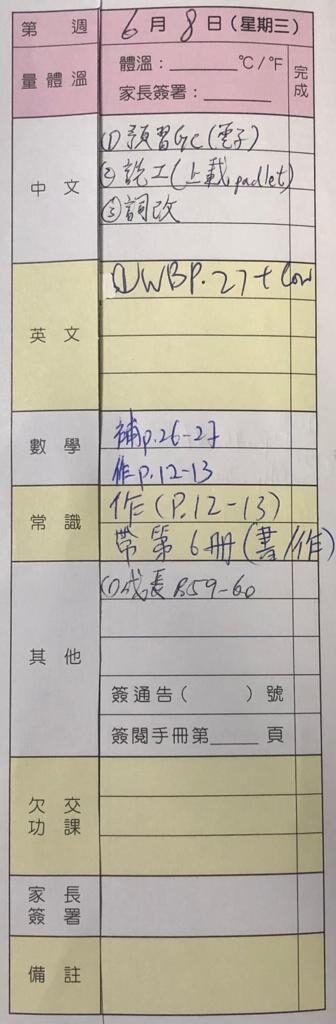 第 週 6 月 8 日 (星期三)
量體溫 體溫：______ ℃/℉ 完成
家長簽署：______
中文 (1) 預習GC(電子)
(2) 說工(上載padlet)
(3) 詞改
英文 (1) WB P.27 +
數學 補p.26-27
作p.12-13
常識 作(P.12-13)
帶第6冊(書/作)
其他 (1) 成長 P.59-60
簽通告( )號
簽閱手冊第____頁
欠交功課
家長簽署
備註